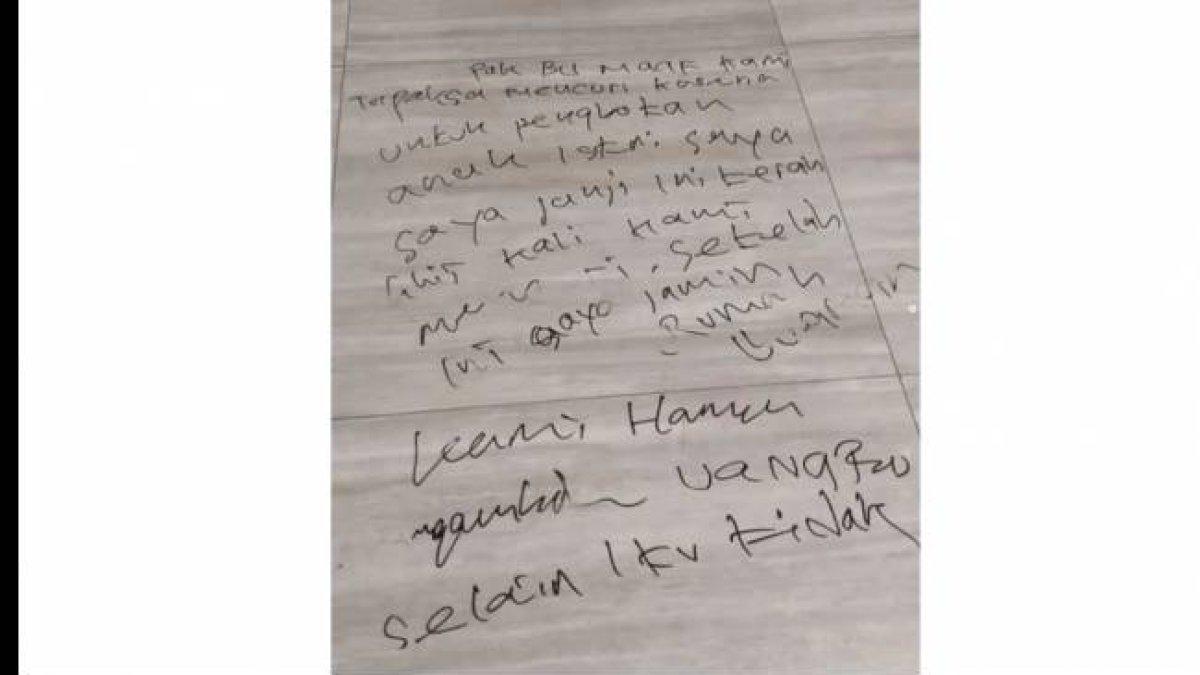 Pak Bu maaf kami
Terpaksa mencuri karena
untuk pengobatan
anak istri saya
saya janji ini terah
khir kali kami
setelah
ini saya jamin
Rumah
kami Hanya
ngambil UANG Bu
selain itu tidak